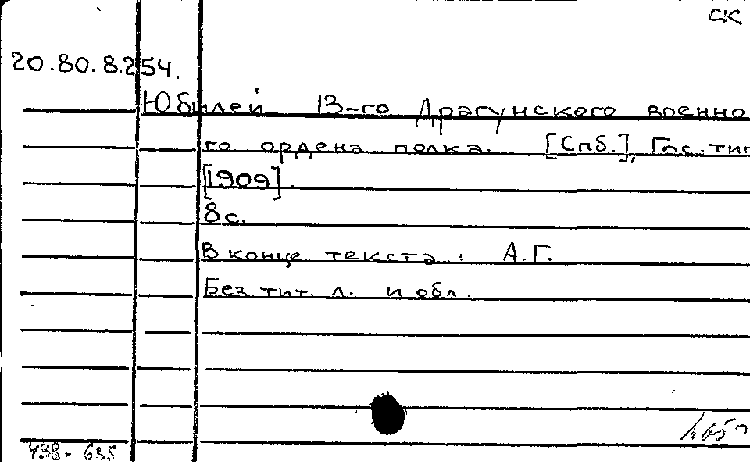 СК
20.80.8.254.
Юбилей 13-го Драгунского военно
го ордена полка. [Спб.], Гос. тип
[1909].
8 с.
В конце текста: А.Г.
Без тит. л. и обл.
438-635